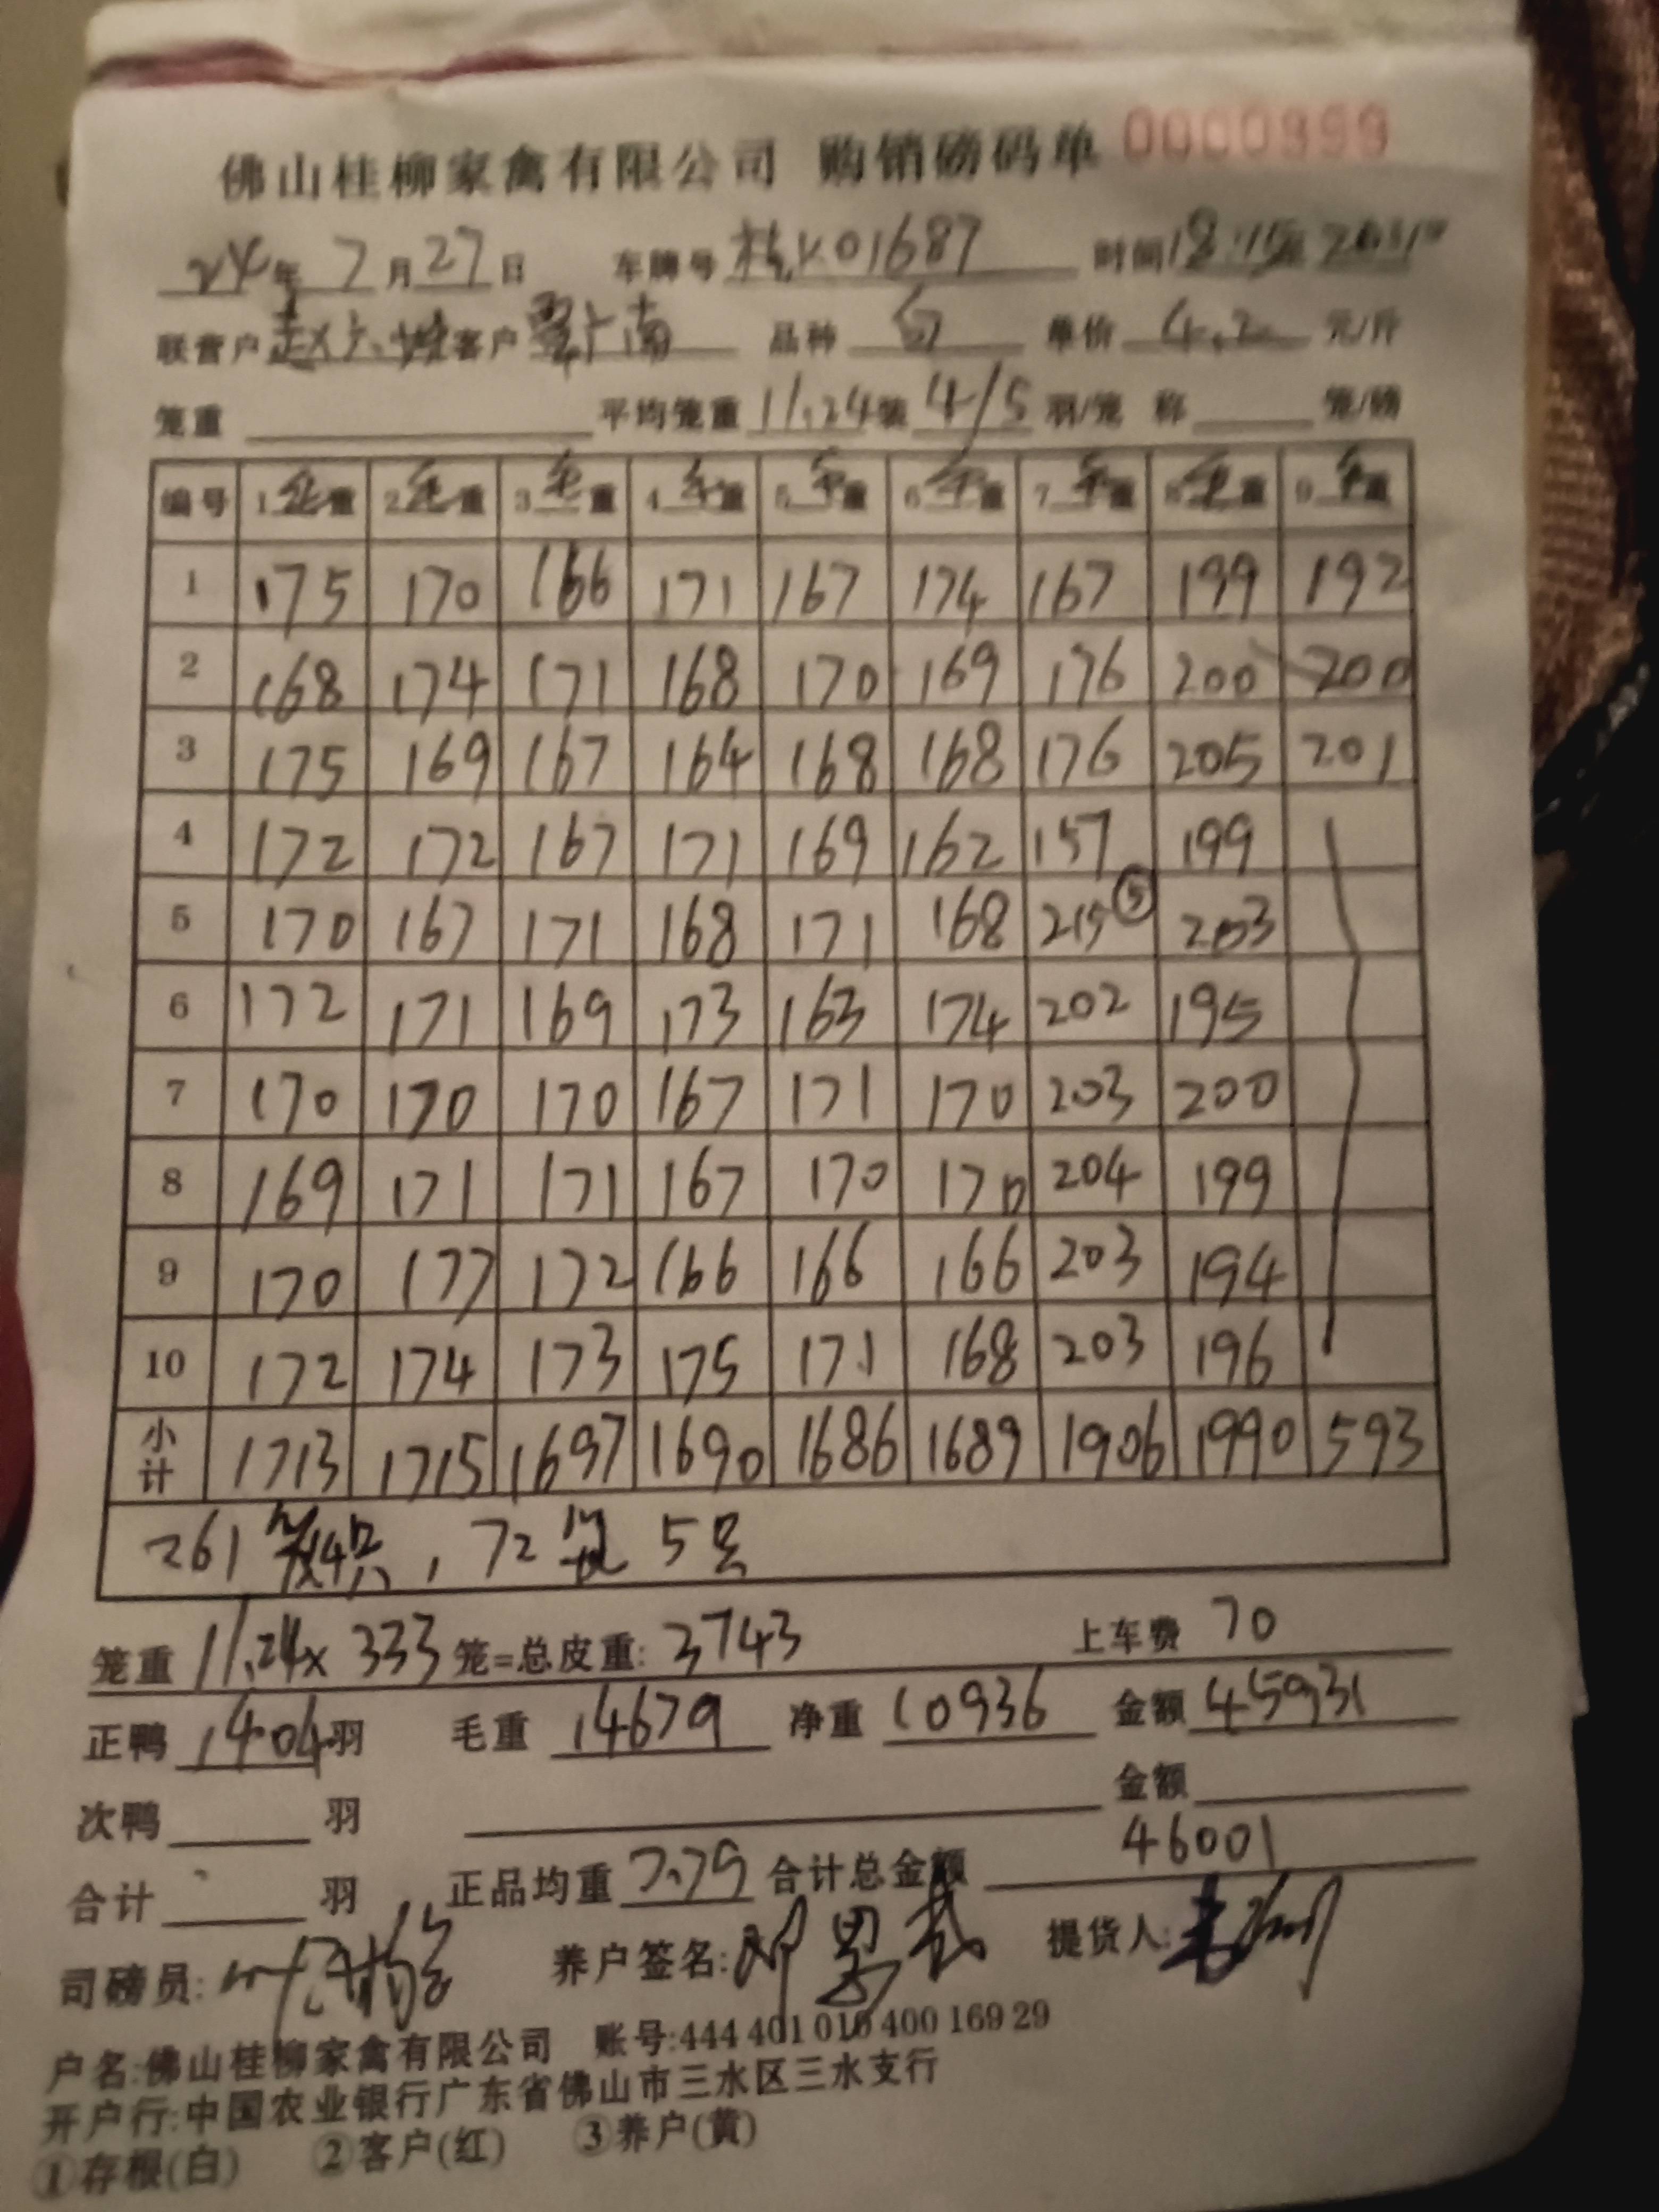 佛山桂柳家禽有限公司 购销磅码单 0000999
24年 7月27日 车牌号 桂K01687 时间18:15
联营户 客户 覃广南 品种 白 单价 4.2 元/斤
笼重 平均笼重 11.24 装 4/5 羽/笼 称 笼/磅
编号 1毛重 2毛重 3毛重 4毛重 5毛重 6毛重 7毛重 8毛重 9毛重
1 175 170 166 171 167 174 167 199 192
2 168 174 171 168 170 169 176 200 200
3 175 169 167 164 168 168 176 205 201
4 172 172 167 171 169 162 157 199
5 170 167 171 168 171 168 215⑤ 203
6 172 171 169 173 163 174 202 195
7 170 170 170 167 171 170 203 200
8 169 171 171 167 170 170 204 199
9 170 177 172 166 166 166 203 194
10 172 174 173 175 171 168 203 196
小计 1713 1715 1697 1690 1686 1689 1906 1990 593
261笼4只, 72笼5只
笼重 11.24x 333 笼=总皮重: 3743 上车费 70
正鸭 1404 羽 毛重 14679 净重 10936 金额 45931
次鸭 羽 金额
合计 羽 正品均重 7.79 合计总金额 46001
司磅员: 养户签名: 提货人:
户名:佛山桂柳家禽有限公司 账号:444 401 010 400 169 29
开户行:中国农业银行广东省佛山市三水区三水支行
①存根(白) ②客户(红) ③养户(黄)